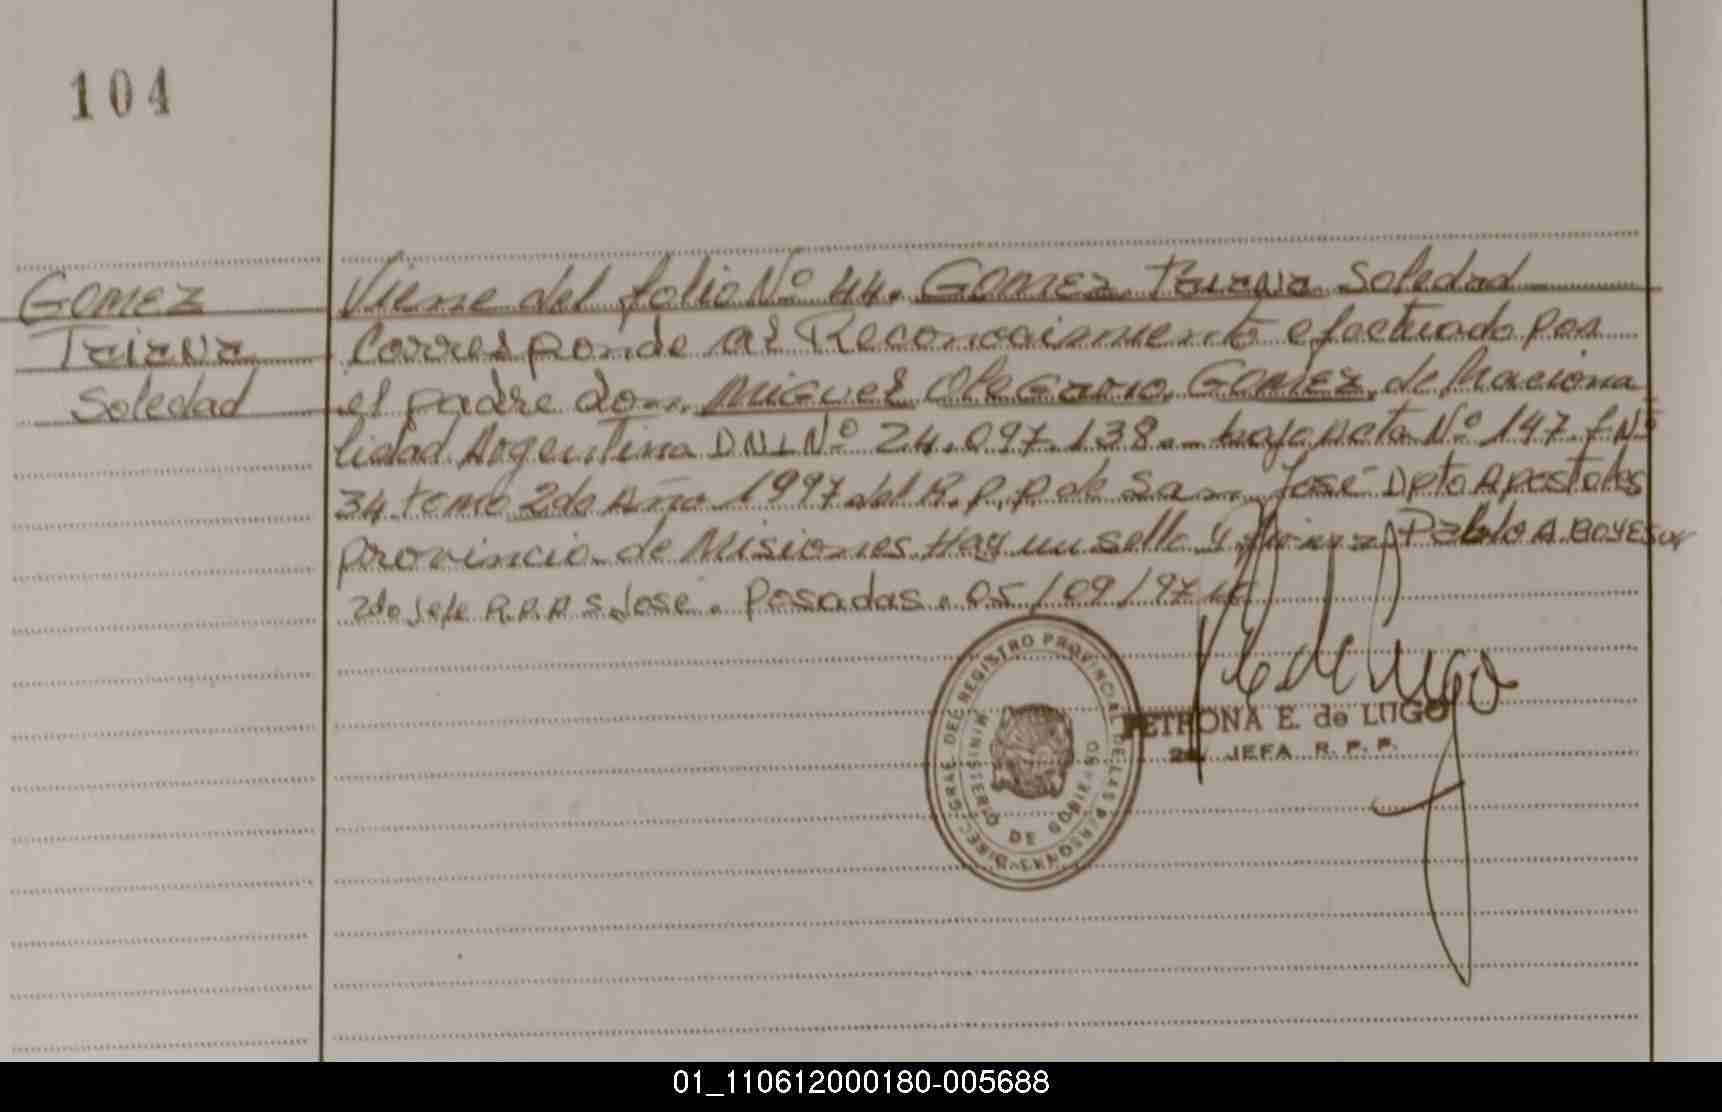 104
GOMEZ
Taiana
Soledad
Viene del folio Nº 44. GOMEZ Taiana Soledad
Corresponde al Reconocimiento efectuado por
el padre don. Miguel Olegario GOMEZ, de Naciona
lidad Argentina DNI Nº 24.097.138.- bajo acta Nº 147 fNº
34 tomo 2do Año 1997 del R.P.P de San José Dpto Apostoles
provincia de Misiones Hay un sello y firma Pablo A. BOYE
2do Jefe R.P.P S. José. Posadas. 05/09/97
DIREC. GRAL. DEL REGISTRO PROVINCIAL DE LAS PERSONAS
MINISTERIO DE GOBIERNO
PETRONA E. de LUGO
2a. JEFA R. P. P.
01_110612000180-005688